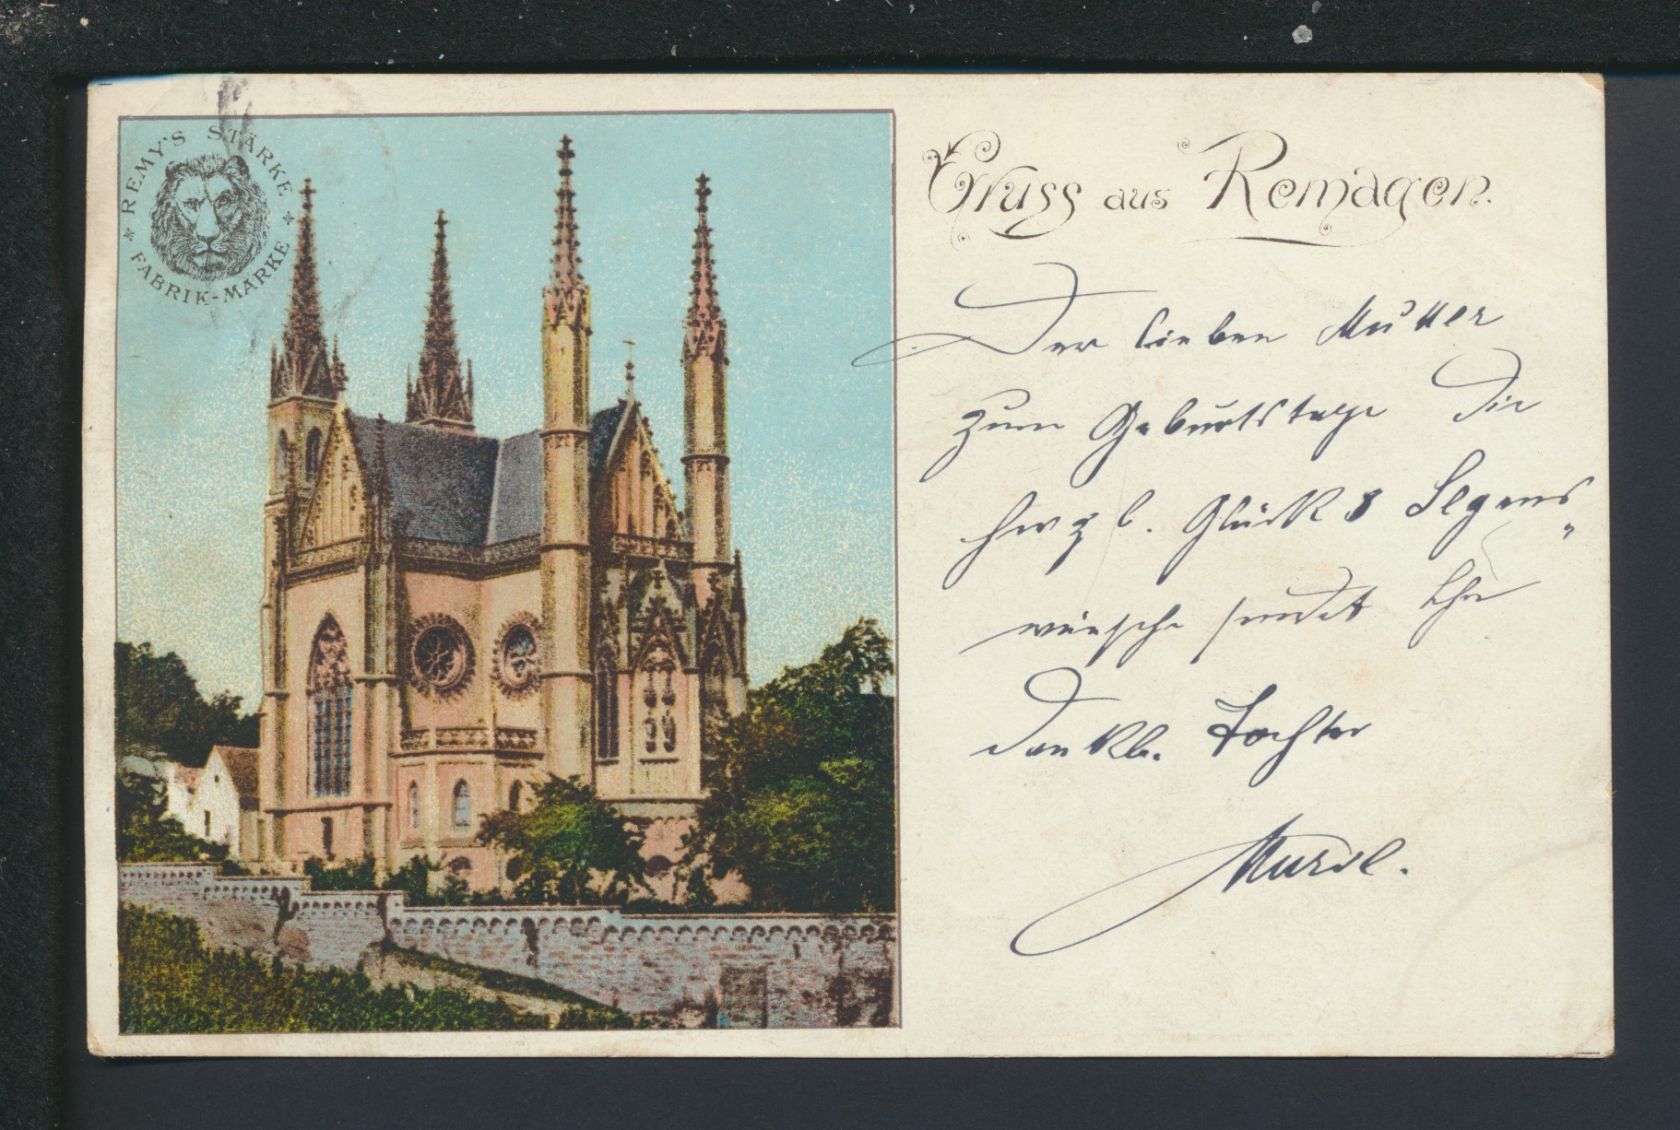 REMY'S STÄRKE
* FABRIK-MARKE *
Gruss aus Remagen.
Der lieben Mutter
zum Geburtstage die
herzl. Glück & Segens"
wünsche sendet Ihre
dankb. Tochter